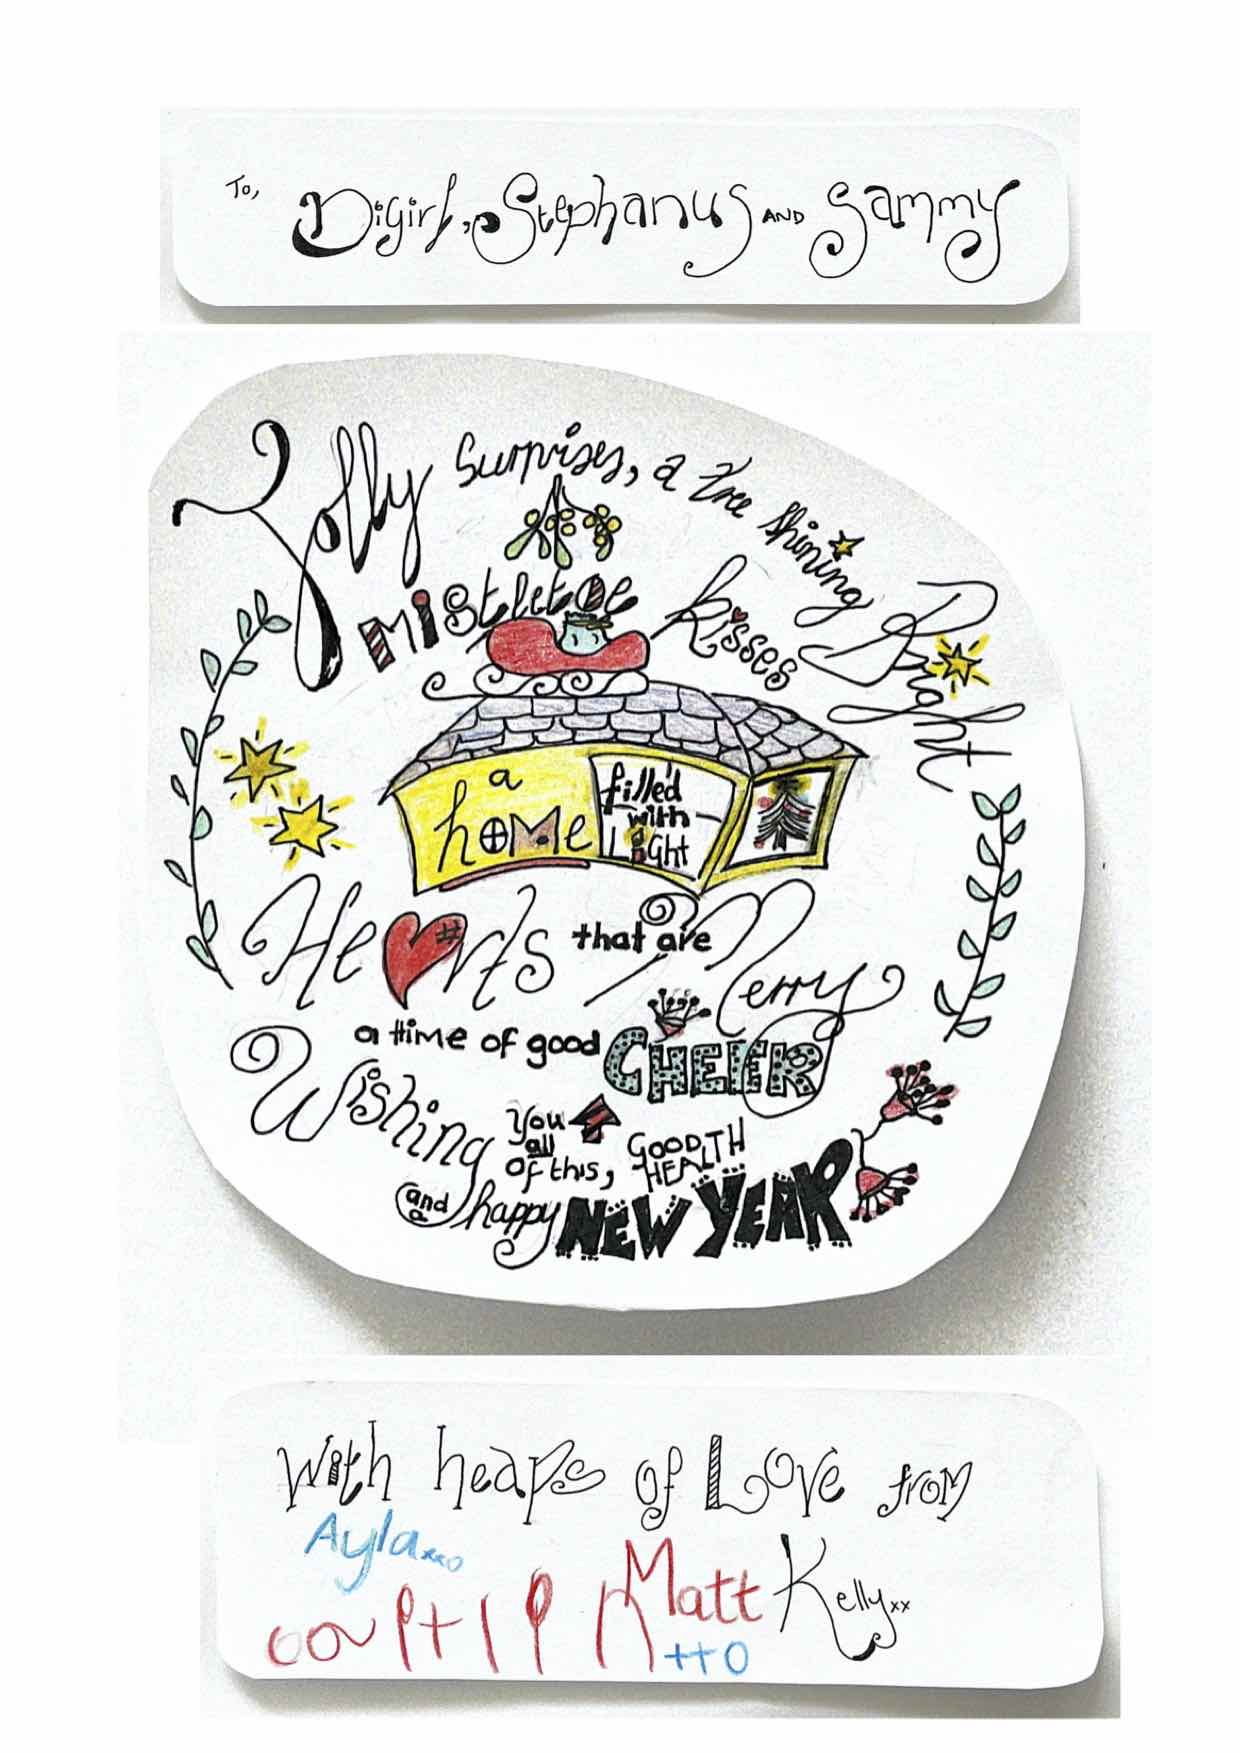 To, Digirl, Stephanus AND Sammy
Jolly surprises, a tree shining Bright
mistletoe kisses
a home filled with Light
Hearts that are Merry
a time of good CHEER
Wishing You all of this, GOOD HEALTH
and a happy NEW YEAR
With heaps of Love from
Ayla xxo
Matt Kelly xx
++o